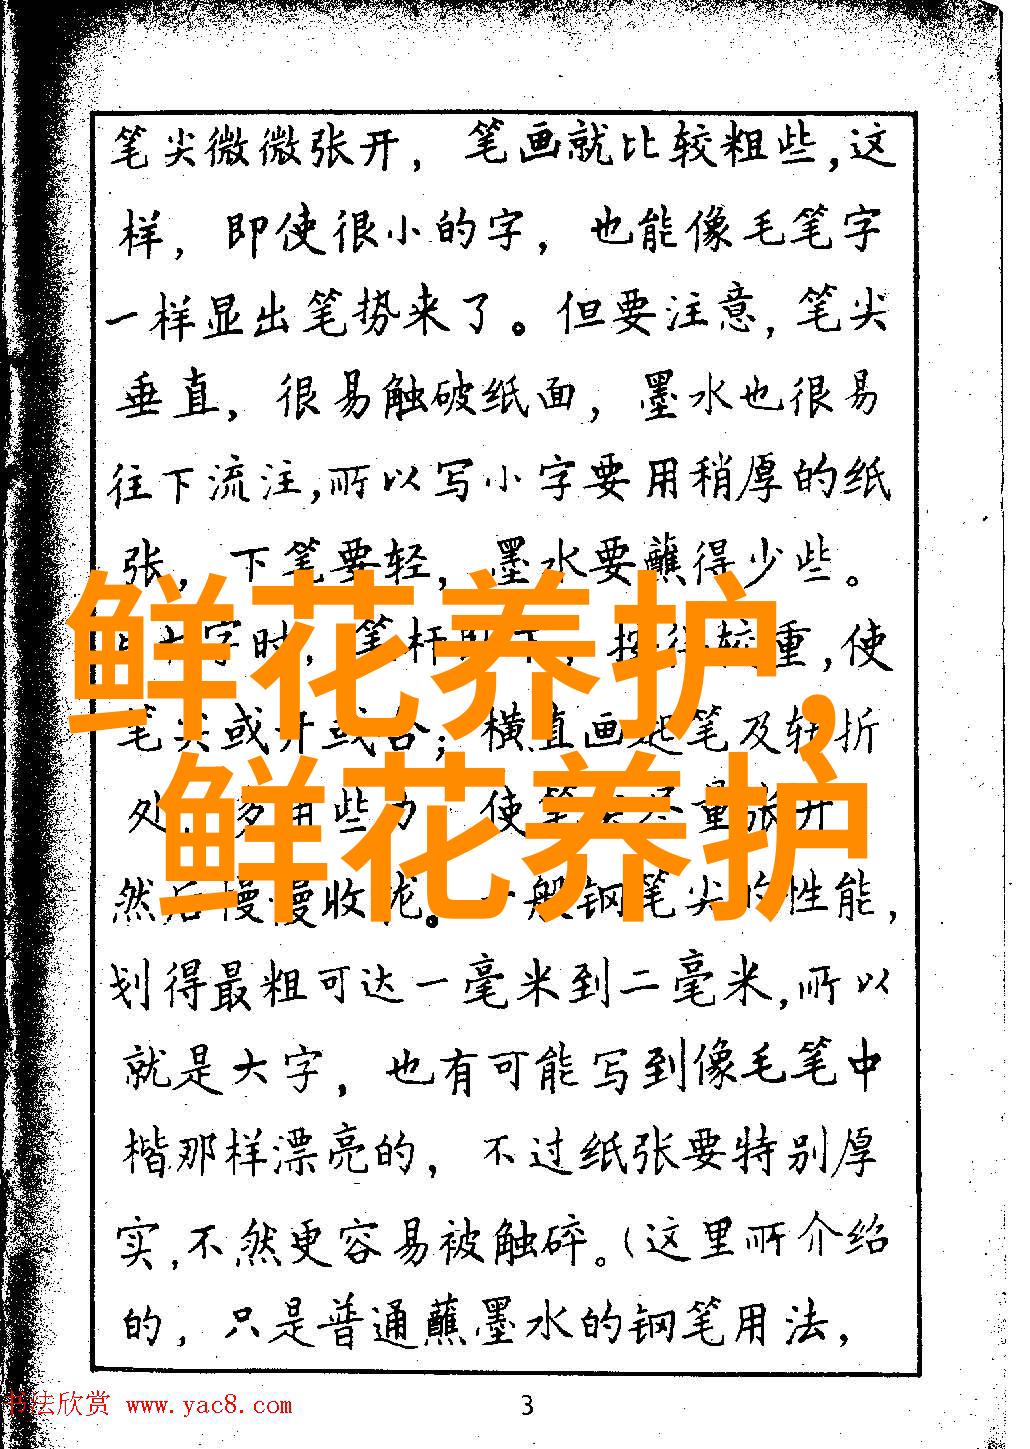 笔尖微微张开，笔画就比较粗些，这
样，即使很小的字，也能像毛笔字
一样显出笔势来了。但要注意，笔尖
垂直，很易触破纸面，墨水也很易
往下流注，所以写小字要用稍厚的纸
张，下笔要轻，墨水要蘸得少些。
字时，笔杆 按得较重，使
鲜花养护，
笔尖或开或合；横直画起笔及转折
处， 些力 使笔 重张开
鲜花养护
然后慢慢收拢。一般钢笔尖的性能，
划得最粗可达一毫米到二毫米，所以
就是大字，也有可能写到像毛笔中
楷那样漂亮的，不过纸张要特别厚
实，不然更容易被触碎。（这里所介绍
的，只是普通蘸墨水的钢笔用法，
书法欣赏 www.yac8.com
3